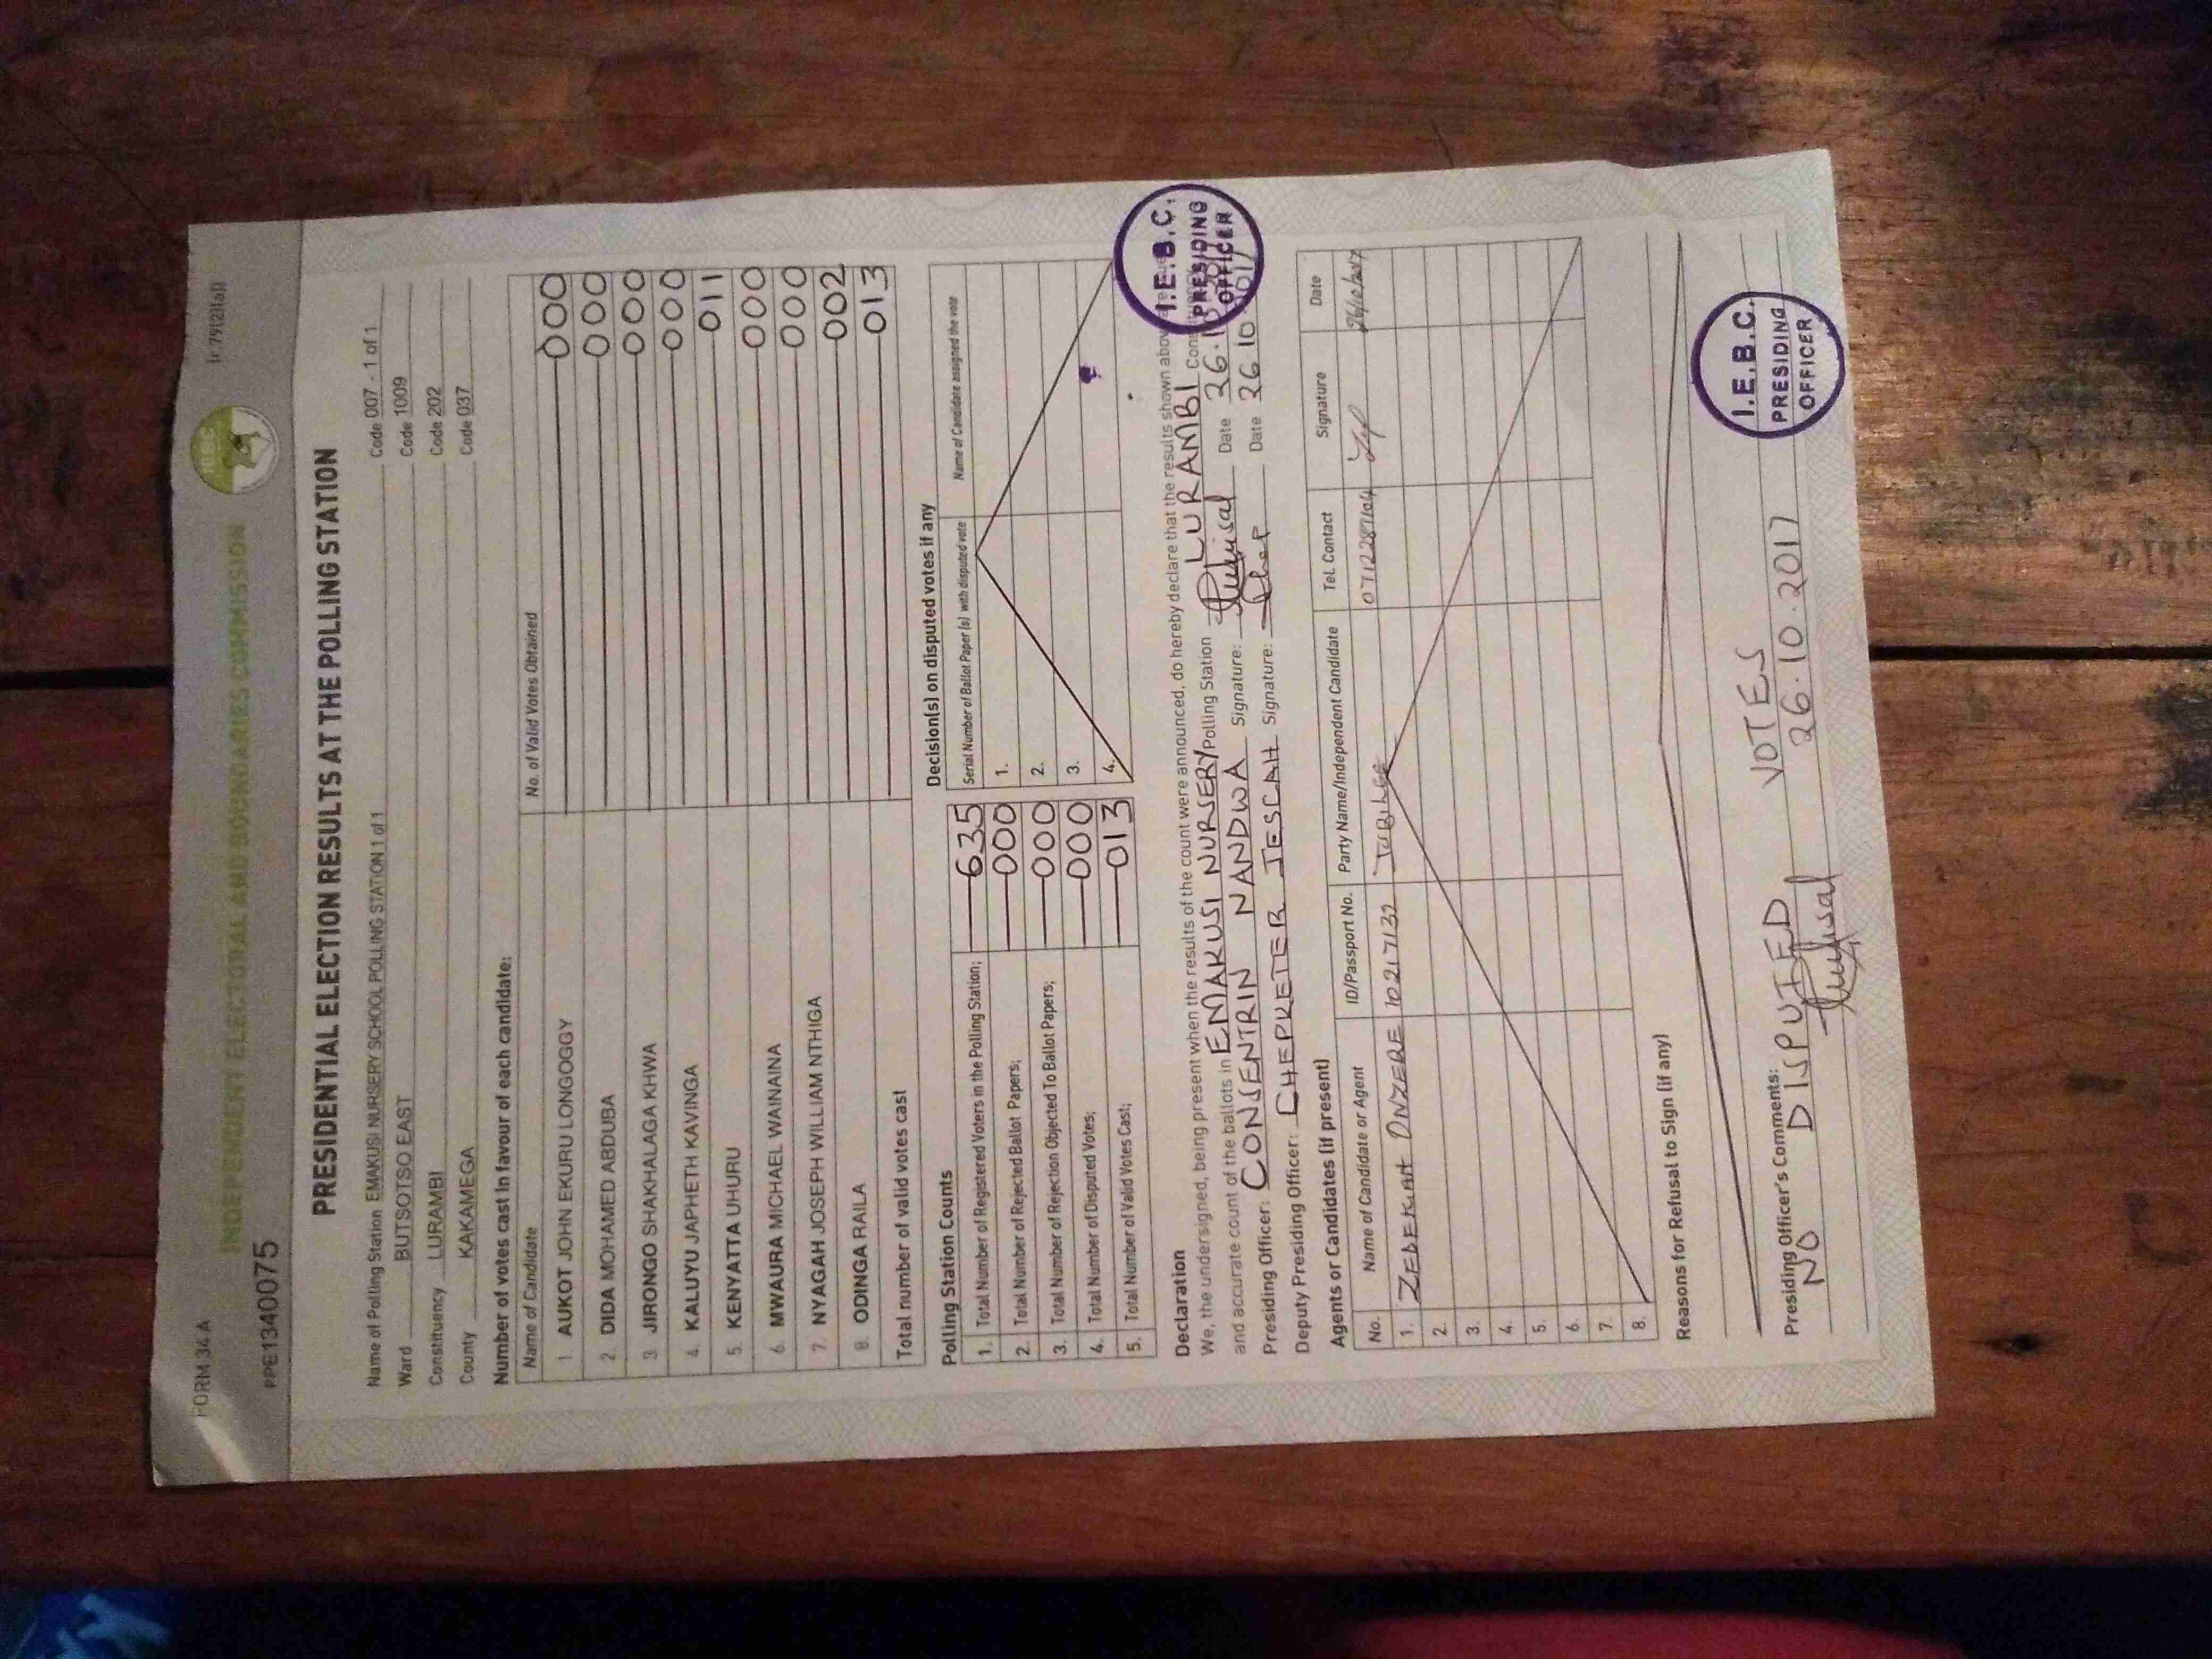 FORM 34 A
INDEPENDENT ELECTORAL AND BOUNDARIES COMMISSION
IEBC
PPE1340075
PRESIDENTIAL ELECTION RESULTS AT THE POLLING STATION
Name of Polling Station EMAKUSI NURSERY SCHOOL POLLING STATION 1 of 1 Code 007 - 1 of 1
Ward BUTSOTSO EAST Code 1009
Constituency LURAMBI Code 202
County KAKAMEGA Code 037
Number of votes cast in favour of each candidate:
Name of Candidate No. of Valid Votes Obtained
1. AUKOT JOHN EKURU LONGOGGY 000
2. DIDA MOHAMED ABDUBA 000
3 JIRONGO SHAKHALAGA KHWA 000
4. KALUYU JAPHETH KAVINGA 000
5. KENYATTA UHURU 011
6. MWAURA MICHAEL WAINAINA 000
7. NYAGAH JOSEPH WILLIAM NTHIGA 000
8 ODINGA RAILA 002
Total number of valid votes cast 013
Polling Station Counts
1. Total Number of Registered Voters in the Polling Station; 635
2. Total Number of Rejected Ballot Papers; 000
3. Total Number of Rejection Objected To Ballot Papers; 000
4. Total Number of Disputed Votes; 000
5. Total Number of Valid Votes Cast; 013
Decision(s) on disputed votes if any
Serial Number of Ballot Paper (s) with disputed vote Name of Candidate assigned the vote
1.
2.
3.
4.
Declaration
We, the undersigned, being present when the results of the count were announced, do hereby declare that the results shown above
and accurate count of the ballots in EMAKUSI NURSERY Polling Station LURAMBI
Presiding Officer: CONSENTRIN NANDWA Signature: Date 26.10.2017
Deputy Presiding Officer: CHEPKETER JESCAH Signature: Date 26.10.2017
I.E.B.C.
PRESIDING
OFFICER
Agents or Candidates (if present)
No. Name of Candidate or Agent ID/Passport No. Party Name/Independent Candidate Tel. Contact Signature Date
1. ZEDEKIAH ONZERE 10217132 Jubilee 26/10/2017
2.
3.
4.
5.
6.
7.
8.
Reasons for Refusal to Sign (if any)
Presiding Officer's Comments:
NO DISPUTED VOTES
26.10.2017
I.E.B.C.
PRESIDING
OFFICER